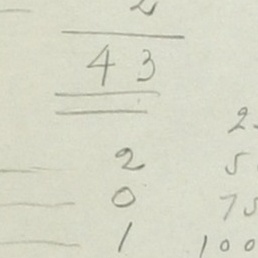 2
43
2
2 5
0 75
1 100